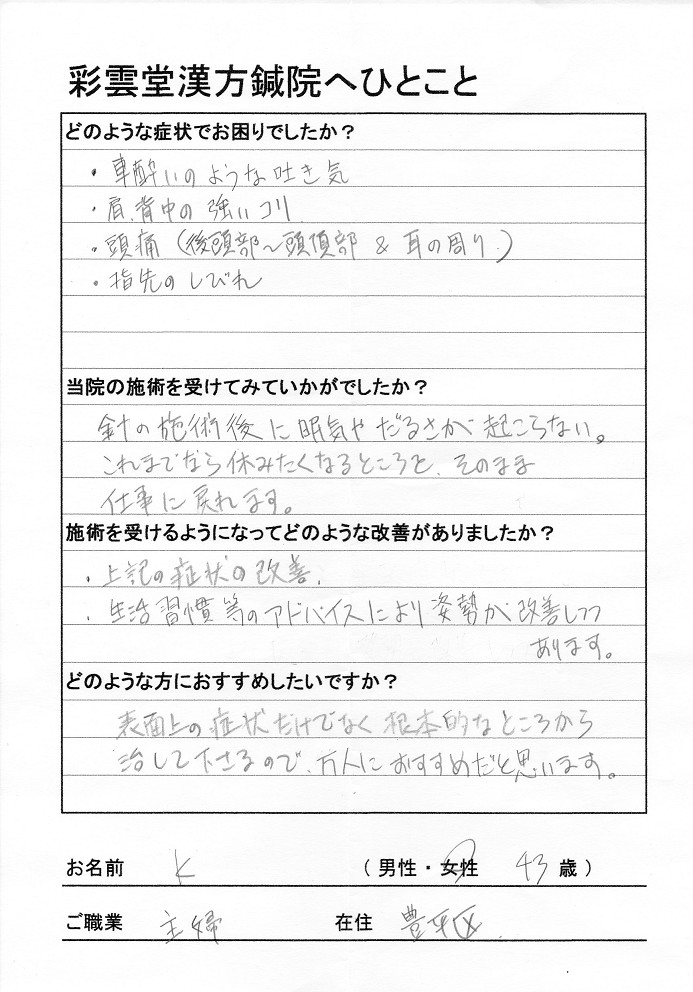 彩雲堂漢方鍼院へひとこと
どのような症状でお困りでしたか？
・車酔いのような吐き気
・肩、背中の強いコリ
・頭痛（後頭部～頭頂部 & 耳の周り）
・指先のしびれ
当院の施術を受けてみていかがでしたか？
針の施術後に眠気やだるさが起こらない。
これまでなら休みたくなるところを、そのまま
仕事に戻れます。
施術を受けるようになってどのような改善がありましたか？
・上記の症状の改善、
・生活習慣等のアドバイスにより姿勢が改善しつつ
あります。
どのような方におすすめしたいですか？
表面上の症状だけでなく根本的なところから
治して下さるので、万人におすすめだと思います。
お名前 K （男性・女性 43歳）
ご職業 主婦 在住 豊平区